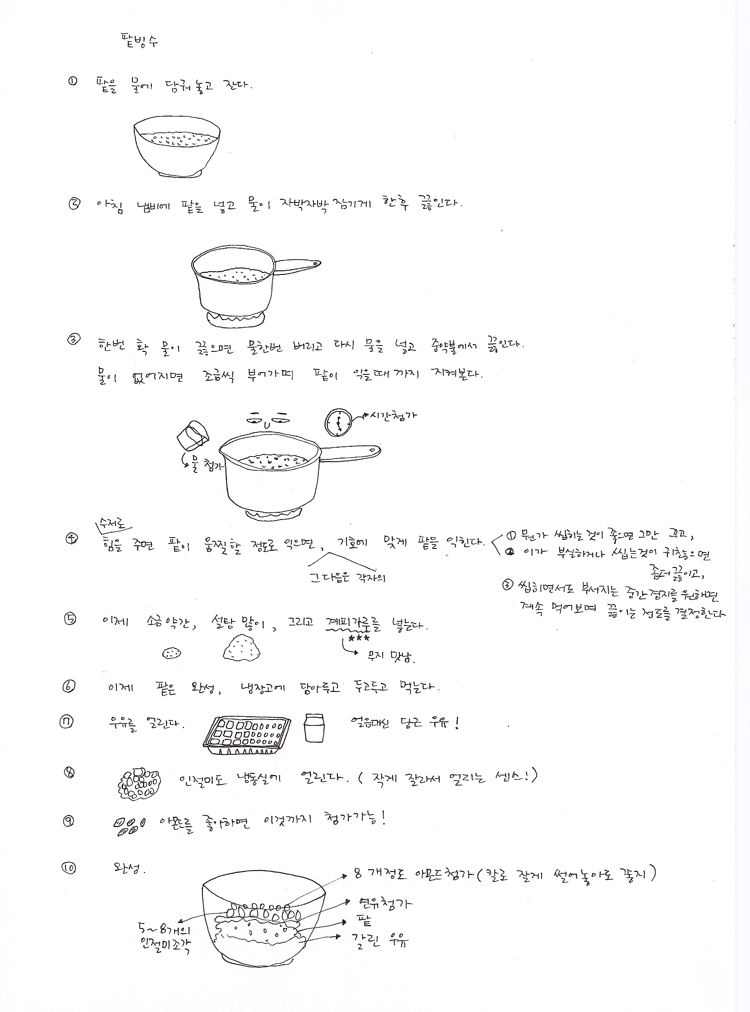 팥빙수
① 팥을 물에 담궈놓고 잔다.
② 아침 냄비에 팥을 넣고 물이 자박자박 잠기게 한후 끓인다.
③ 한번 확 물이 끓으면 물한번 버리고 다시 물을 넣고 중약불에서 끓인다.
물이 없어지면 조금씩 부어가며 팥이 익을때까지 지켜본다.
시간첨가
물 첨가
수저로
④ 힘을 주면 팥이 움찔할 정도로 익으면, 기호에 맞게 팥을 익힌다.
그다음은 각자의
① 뭔가 씹히는것이 좋으면 그만 끄고,
② 이가 부실하거나 씹는것이 귀찮으면
좀더 끓이고,
③ 씹히면서도 부서지는 중간경지를 원하면
계속 먹어보며 끓이는 정도를 결정한다
⑤ 이제 소금약간, 설탕 많이, 그리고 계피가루를 넣는다.
***
무지 맛남.
⑥ 이제 팥은 완성, 냉장고에 담아두고 두고두고 먹는다.
⑦ 우유를 얼린다. 얼음대신 당근 우유!
⑧ 인절미도 냉동실에 얼린다. (작게 잘라서 얼리는 센스!)
⑨ 아몬드를 좋아하면 이것까지 첨가가능!
⑩ 완성.
8개정도 아몬드첨가(칼로 잘게 썰어놓아도 좋지)
연유첨가
팥
갈린 우유
5~8개의
인절미조각